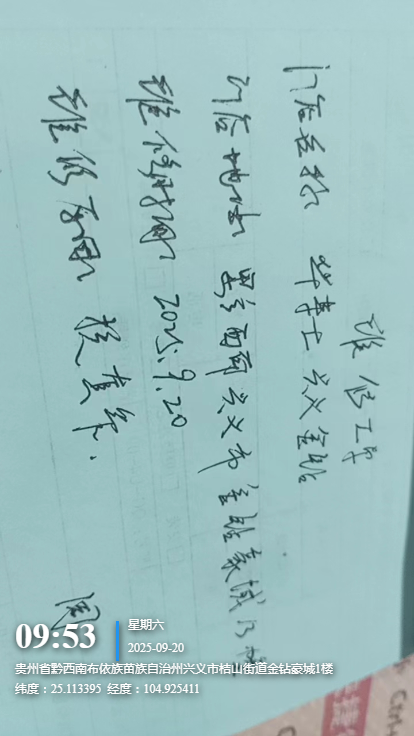 维修工单
门店名称 华莱士兴义金钻
门店地址 黔西南兴义市金钻豪城1楼
维修时间 2025.9.20
维修原因 检查单.
周
09:53
星期六
2025-09-20
贵州省黔西南布依族苗族自治州兴义市桔山街道金钻豪城1楼
纬度：25.113395 经度：104.925411